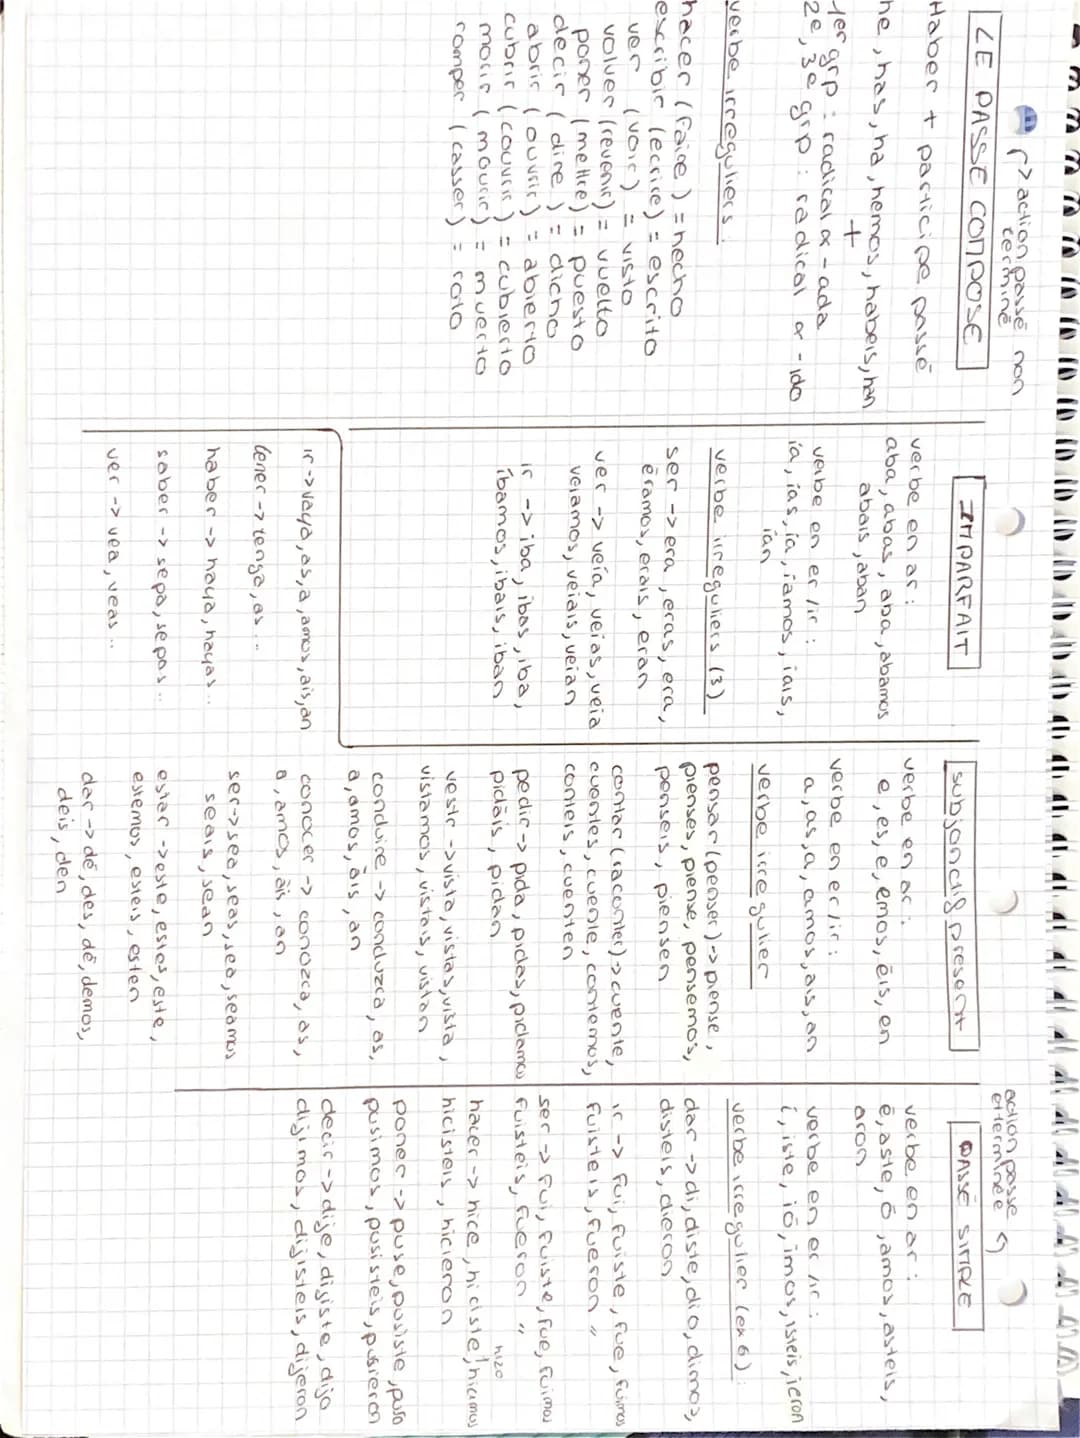 r> action passé non
terminé
LE PASSE COMPOSE
Haber + participe passé
he, has, ha, hemos, habeis, han
+
1er grp : radical α - ada
2e, 3e grp : radical α - ido
verbe irreguliers :
hacer (faire) = hecho
escribir (ecrire) = escrito
ver (voir) = visto
volver (revenir) = vuelto
poner (mettre) = puesto
decir (dire) = dicho
abrir (ouvrir) = abierto
cubrir (couvrir) = cubierto
morir (mourir) = muerto
romper (casser) = roto
IMPARFAIT
verbe en ar :
aba, abas, aba, abamos
abais, aban
verbe en er/ir :
ía, ías, ía, íamos, íais,
ían
verbe irreguliers (3)
ser -> era, eras, era,
éramos, erais, eran
ver -> veía, veias, veia
veiamos, veiais, veian
ir -> iba, ibas, iba,
íbamos, ibais, iban
ir -> vaya, as, a, amos, ais, an
tener -> tenga, as ...
haber -> haya, hayas ...
saber -> sepa, sepas ...
ver -> vea, veas ...
subjonctif present
verbe en ar :
e, es, e, emos, éis, en
verbe en er/ir :
a, as, a, amos, ais, an
verbe irregulier
pensar (penser) -> piense,
pienses, piense, pensemos,
penseis, piensen
contar (raconter) -> cuente,
cuentes, cuente, contemos,
conteis, cuenten
pedir -> pida, pidas, pidamos
pidáis, pidan
vestir -> vista, vistas, vista,
vistamos, vistais, vistan
conduire -> conduzca, as,
a, amos, áis, an
conocer -> conozca, as,
a, amos, áis, an
ser -> sea, seas, sea, seamos
seais, sean
estar -> este, estes, este,
estemos, esteis, esten
dar -> dé, des, dé, demos,
deis, den
action passe
et terminée
PASSÉ SIMPLE
verbe en ar :
é, aste, ó, amos, asteis,
aron
verbe en er/ir :
í, iste, ió, imos, isteis, ieron
verbe irregulier (ex 6) :
dar -> di, diste, dio, dimos,
disteis, dieron
ir -> fui, fuiste, fue, fuimos
fuisteis, fueron "
ser -> fui, fuiste, fue, fuimos
fuisteis, fueron "
hizo
hacer -> hice, hiciste, hicimos
hicisteis, hicieron
poner -> puse, pusiste, puso
pusimos, pusisteis, pusieren
decir -> dije, dijiste, dijo
dijimos, dijisteis, dijeron